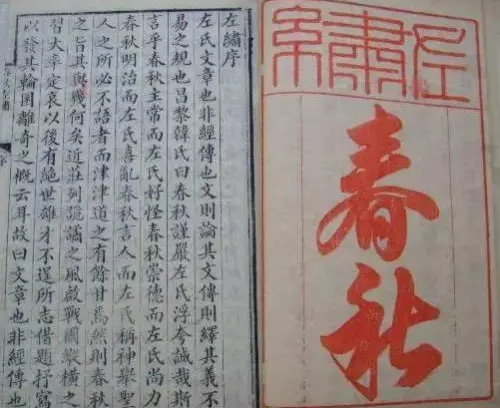 左繡
春秋
左繡序
左氏文章也非經傳也文則論其文傳則繹其義不
易之規也昌黎韓氏曰春秋謹嚴左氏浮夸誠哉斯
言乎春秋主常而左氏好怪春秋崇德而左氏尚力
春秋明治而左氏喜亂春秋言人而左氏稱神舉聖
人之所必不語者而津津道之有餘甘焉然則春秋
之旨其與幾何矣近莊列詭譎之風啟戰國縱橫之
習大率定哀以後有絕世雄才不逞所志借題抒寫
以發其輪囷離奇之概云耳故曰文章也非經傳也